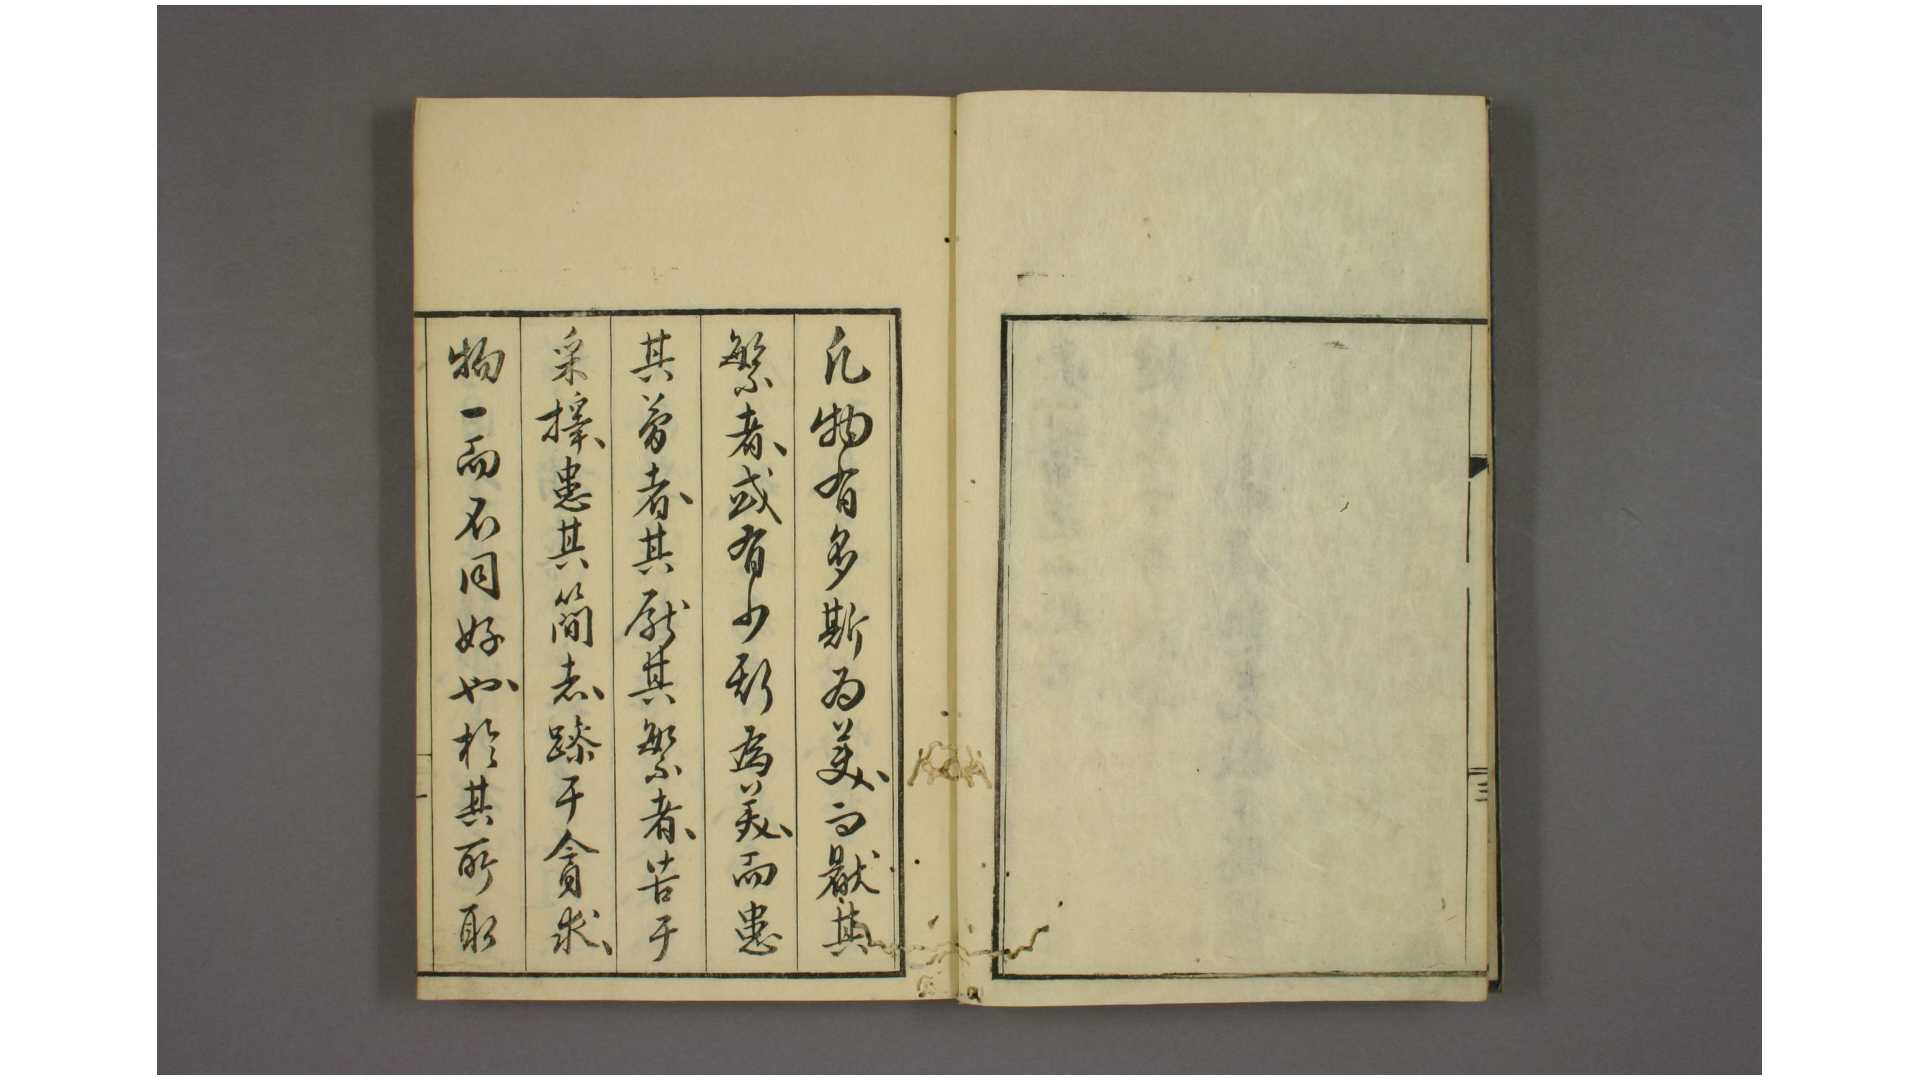 凡物有多斯為美而厭其
繁者或有少斯為美而患
其嗇者其厭其繁者苦于
采擇患其簡者躁于貪求
物一而不同好也於其所取